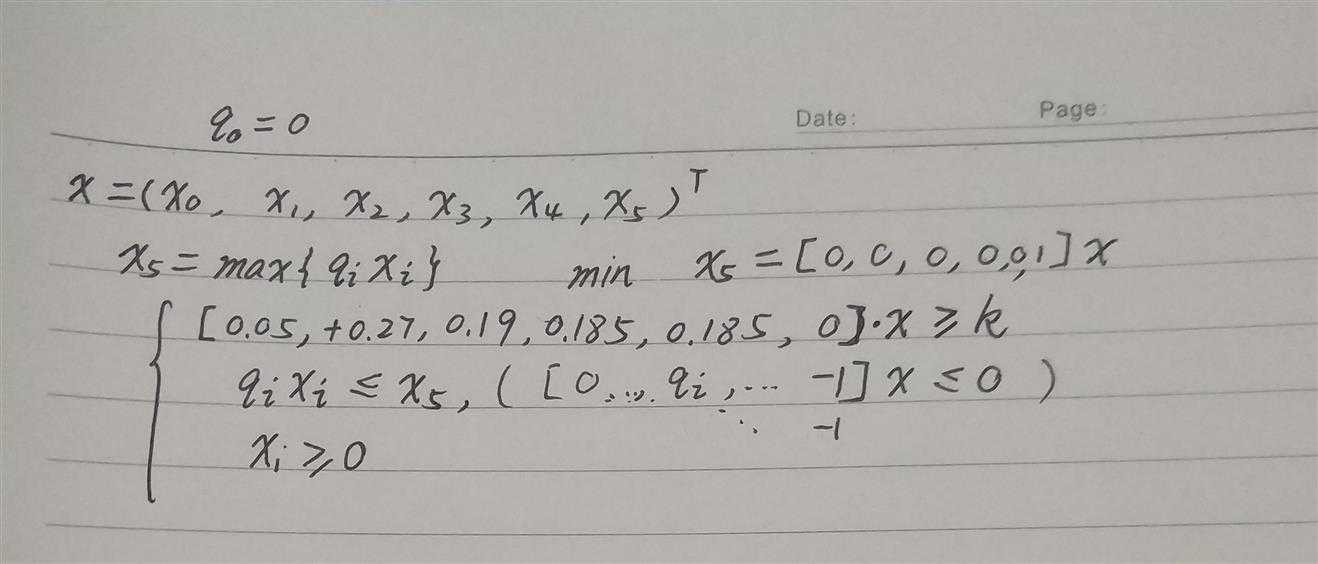 q₀ = 0
Date:
Page:
x = (x₀, x₁, x₂, x₃, x₄, x₅)ᵀ
x₅ = max{qᵢxᵢ} min x₅ = [0, 0, 0, 0, 0, 1] x
[0.05, +0.27, 0.19, 0.185, 0.185, 0]·x ≥ k
qᵢxᵢ ≤ x₅, ([0,... qᵢ, ... -1] x ≤ 0)
⋱ -1
xᵢ ≥ 0